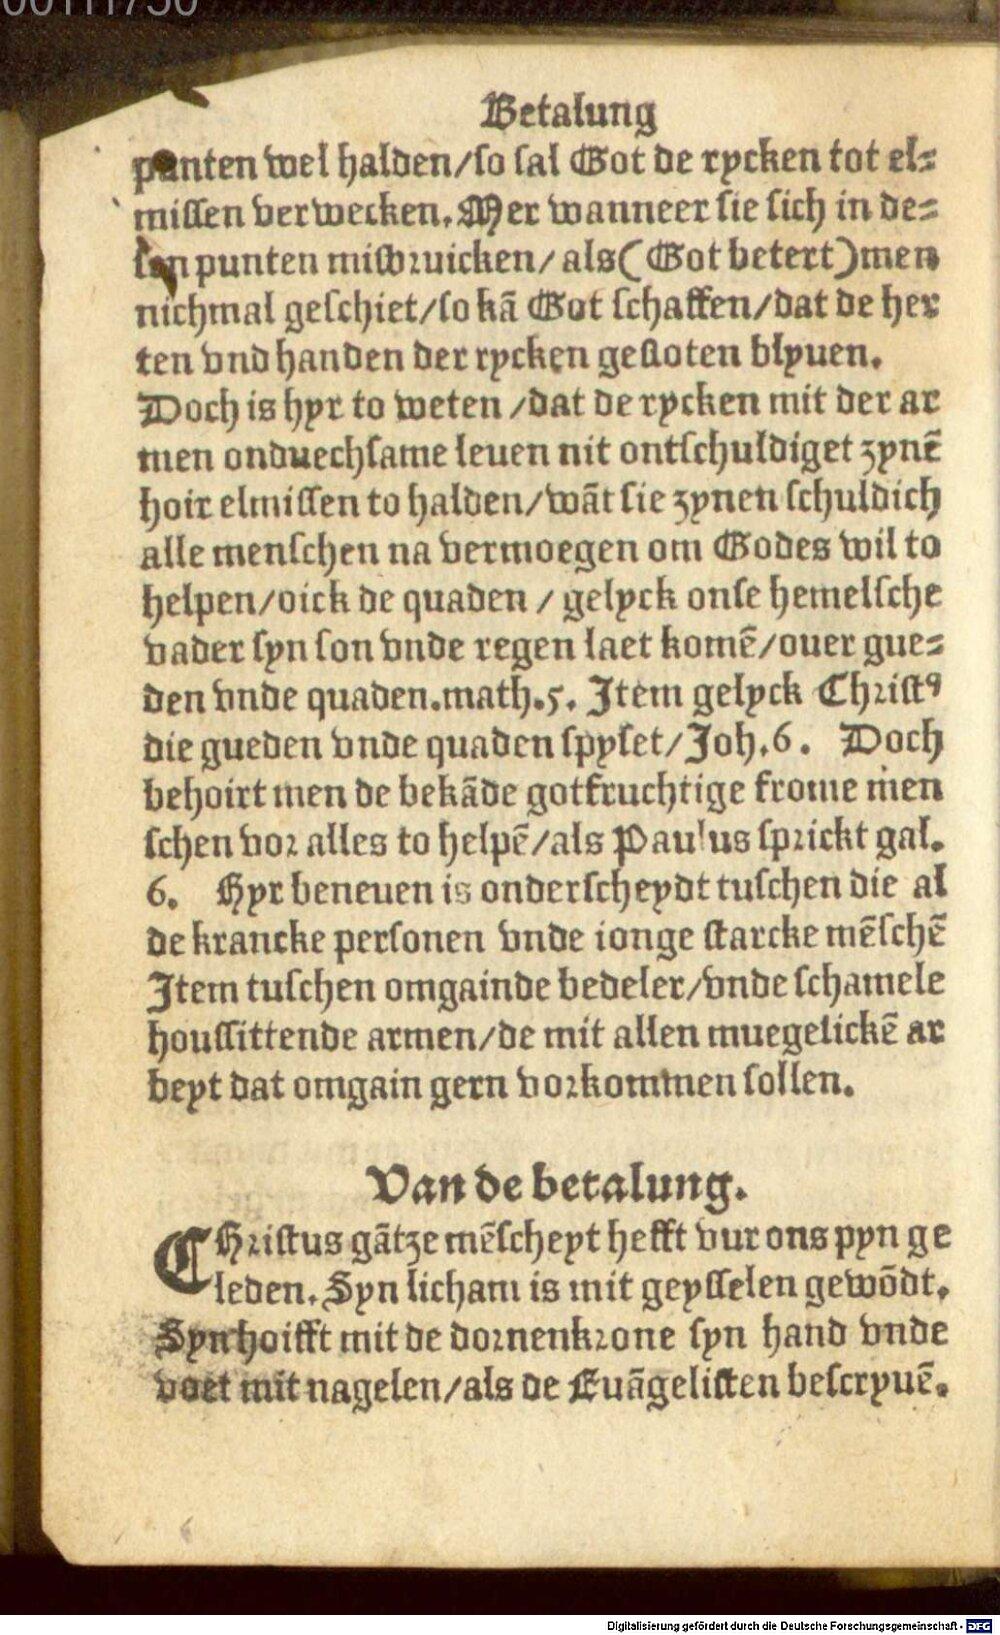 00111750
Betalung
punten wel halden/so sal Got de rycken tot el=
missen verwecken. Mer wanneer sie sich in de=
sen punten misbruicken/als(Got betert)men
nichmal geschiet/so kā Got schaffen/dat de her
ten vnd handen der rycken gesloten blyuen.
Doch is hyr to weten /dat de rycken mit der ar
men onduechsame leuen nit ontschuldiget zynē
hoir elmissen to halden/wāt sie zynen schuldich
alle menschen na vermoegen om Godes wil to
helpen/oick de quaden / gelyck onse hemelsche
vader syn son vnde regen laet komē/ouer gue=
den vnde quaden.math.5. Item gelyck Christꝰ
die gueden vnde quaden spyset/Joh.6. Doch
behoirt men de bekāde gotfruchtige frome men
schen vor alles to helpē/als Paulus sprickt gal.
6. Hyr beneuen is onderscheydt tuschen die al
de krancke personen vnde ionge starcke mēschē
Item tuschen omgainde bedeler/vnde schamele
houssittende armen/de mit allen muegelickē ar
beyt dat omgain gern vorkommen sollen.
Van de betalung.
CHristus gātze mēscheyt hefft vur ons pyn ge
leden. Syn licham is mit geysselen gewōdt.
Syn hoifft mit de dornenkrone syn hand vnde
voet mit nagelen/als de Euāgelisten bescryuē.
Digitalisierung gefördert durch die Deutsche Forschungsgemeinschaft - DFG